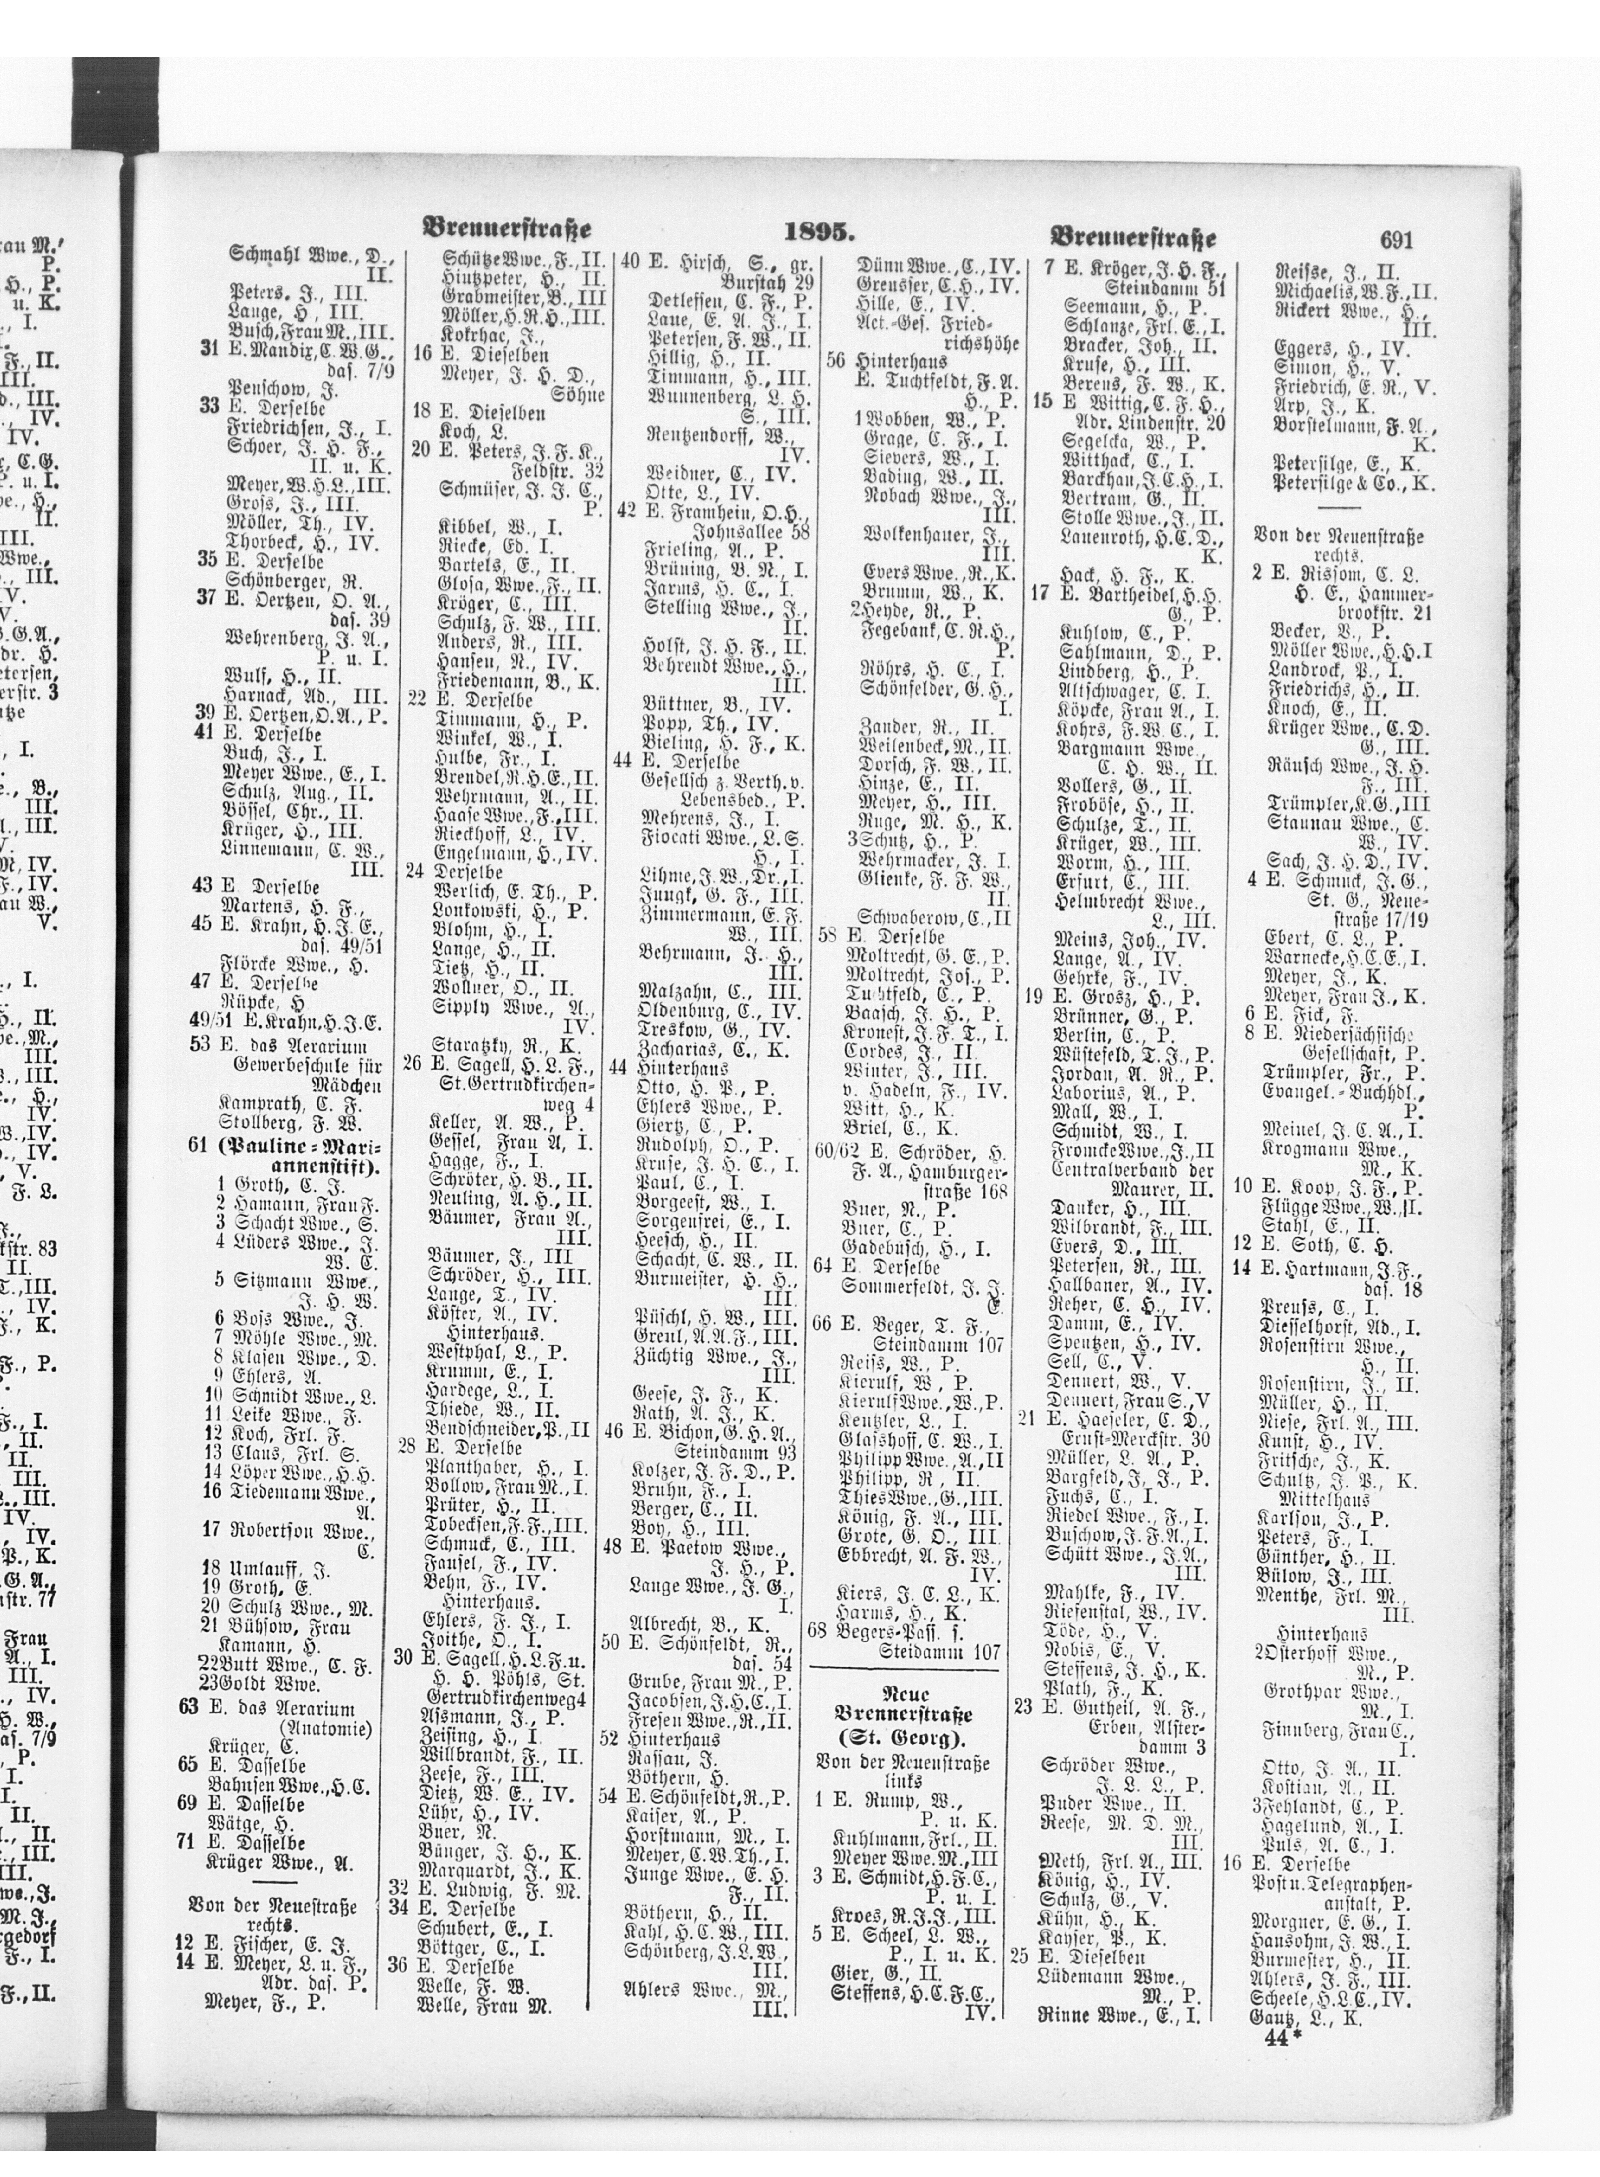 Brennerstraße 1895. Brennerstraße 691
Schmahl Wwe., D.,
II.
Peters, J., III.
Lange, H., III.
Busch, Frau M., III.
31 E. Mandix, C. W. G.,
das. 7/9
Penschow, J.
33 E. Derselbe
Friedrichsen, J., I.
Schoer, J. H. F.,
II. u. K.
Meyer, W. H. L., III.
Gross, J., III.
Möller, Th., IV.
Thorbeck, H., IV.
35 E. Derselbe
Schönberger, R.
37 E. Oertzen, O. A.,
das. 39
Wehrenberg, J. A.,
P. u. I.
Wulf, H., II.
Harnack, Ad., III.
39 E. Oertzen, O. A., P.
41 E. Derselbe
Buch, J., I.
Meyer Wwe., E., I.
Schulz, Aug., II.
Bössel, Chr., II.
Krüger, H., III.
Linnemann, C. W.,
III.
43 E. Derselbe
Martens, H. F.,
45 E. Krahn, H. J. E.,
das. 49/51
Flörcke Wwe., H.
47 E. Derselbe
Rüpcke, H
49/51 E. Krahn, H. J. E.
53 E. das Aerarium
Gewerbeschule für
Mädchen
Kamprath, C. F.
Stollberg, F. W.
61 (Pauline-Mari-
annenstift).
1 Groth, C. J.
2 Hamann, Frau F.
3 Schacht Wwe., S.
4 Lüders Wwe., J.
W. C.
5 Sitzmann Wwe.,
J. H. W.
6 Boss Wwe., J.
7 Möhle Wwe., M.
8 Klasen Wwe., D.
9 Ehlers, A.
10 Schmidt Wwe., L.
11 Leike Wwe., F.
12 Koch, Frl. F.
13 Claus, Frl. S.
14 Löper Wwe., H. H.
16 Tiedemann Wwe.,
A.
17 Robertson Wwe.,
C.
18 Umlauff, J.
19 Groth, E.
20 Schulz Wwe., M.
21 Bühsow, Frau
Kamann, H.
22 Butt Wwe., C. F.
23 Goldt Wwe.
63 E. das Aerarium
(Anatomie)
Krüger, C.
65 E. Dasselbe
Bahnsen Wwe., H. C.
69 E. Dasselbe
Wätge, H.
71 E. Dasselbe
Krüger Wwe., A.
Von der Neuestraße
rechts.
12 E. Fischer, E. J.
14 E. Meyer, L. u. F.,
Adr. das. P.
Meyer, F., P.
Schütze Wwe., F., II.
Hintzpeter, H., II.
Grabmeister, B., III
Möller, H. R. H., III.
Kokrhac, J.,
16 E. Dieselben
Meyer, J. H. D.,
Söhne
18 E. Dieselben
Koch, L.
20 E. Peters, J. F. K.,
Feldstr. 32
Schmüser, J. J. C.,
P.
Kibbel, W., I.
Riecke, Ed. I.
Bartels, E., II.
Glosa, Wwe., F., II.
Kröger, C., III.
Schulz, F. W., III.
Anders, R., III.
Hansen, N., IV.
Friedemann, B., K.
22 E. Derselbe
Timmann, H., P.
Winkel, W., I.
Hulbe, Fr., I.
Brendel, R. H. E., II.
Wehrmann, A., II.
Haase Wwe., F., III.
Rieckhoff, L., IV.
Engelmann, H., IV.
24 Derselbe
Werlich, E. Th., P.
Lonkowski, H., P.
Blohm, H., I.
Lange, H., II.
Tietz, H., II.
Wollner, O., II.
Sipply Wwe., A.,
IV.
Staratzky, R., K.
26 E. Sagell, H. L. F.,
St. Gertrudkirchen-
weg 4
Keller, A. W., P.
Gessel, Frau A, I.
Hagge, F., I.
Schröter, H. B., II.
Neuling, A. H., II.
Bäumer, Frau A.,
III.
Bäumer, J., III
Schröder, H., III.
Lange, T., IV.
Köster, A., IV.
Hinterhaus.
Westphal, L., P.
Krumm, E., I.
Hardege, L., I.
Thiede, W., II.
Bendschneider, P., II
28 E. Derselbe
Planthaber, H., I.
Bollow, Frau M., I.
Prüter, H., II.
Tobecksen, F. F., III.
Schmuck, C., III.
Fausel, F., IV.
Behn, F., IV.
Hinterhaus.
Ehlers, F. J., I.
Joithe, O., I.
30 E. Sagell, H. L. F. u.
H. H. Pöhls, St.
Gertrudkirchenweg 4
Assmann, J., P.
Zeising, H., I
Willbrandt, F., II.
Zeese, F., III.
Dietz, W. E., IV.
Lühr, H., IV.
Buer, N.
Bünger, J. H., K.
Marquardt, J., K.
32 E. Ludwig, F. M.
34 E. Derselbe
Schubert, E., I.
Böttger, C., I.
36 E. Derselbe
Welle, F. W.
Welle, Frau M.
40 E. Hirsch, S., gr.
Burstah 29
Detlefsen, C. F., P.
Laue, E. A. J., I.
Petersen, F. W., II.
Hillig, H., II.
Timmann, H., III.
Wunnenberg, L. H.
S., III.
Rentzendorff, W.,
IV.
Weidner, C., IV.
Otte, L., IV.
42 E. Framhein, O. H.,
Johnsallee 58
Frieling, A., P.
Brüning, B. N., I.
Jarms, H. C., I.
Stelling Wwe., J.,
II.
Holst, J. H. F., II.
Behrendt Wwe., H.,
III.
Büttner, B., IV.
Popp, Th., IV.
Bieling, H. F., K.
44 E. Derselbe
Gesellsch z. Verth. v.
Lebensbed., P.
Mehrens, J., I.
Fiocati Wwe., L. S.
H., I.
Lihme, J. W., Dr., I.
Jungk, G. F., III.
Zimmermann, E. F.
W., III.
Behrmann, J. H.,
III.
Malzahn, C., III.
Oldenburg, C., IV.
Treskow, G., IV.
Zacharias, C., K.
44 Hinterhaus
Otto, H. P., P.
Ehlers Wwe., P.
Giertz, C., P.
Rudolph, O., P.
Kruse, J. H. C., I.
Paul, C., I.
Borgeest, W., I.
Sorgenfrei, E., I.
Heesch, H., II.
Schacht, C. W., II.
Burmeister, H. H.,
III.
Püschl, H. W., III.
Greul, A. A. F., III.
Züchtig Wwe., J.,
III.
Geese, J. F., K.
Rath, A. J., K.
46 E. Bichon, G. H. A.,
Steindamm 93
Kolzer, J. F. D., P.
Bruhn, F., I.
Berger, C., II.
Boy, H., III.
48 E. Paetow Wwe.,
J. H., P.
Lange Wwe., J. G.,
I.
Albrecht, B., K.
50 E. Schönfeldt, R.,
das. 54
Grube, Frau M., P.
Jacobsen, J. H. C., I.
Fresen Wwe., R., II.
52 Hinterhaus
Nassau, J.
Böthern, H.
54 E. Schönfeldt, R., P.
Kaiser, A., P.
Horstmann, M., I.
Meyer, C. W. Th., I.
Junge Wwe., E. H.
F., II.
Böthern, H., II.
Kahl, H. C. W., III.
Schönberg, J. L. W.,
III.
Ahlers Wwe., M.,
III.
Dünn Wwe., C., IV.
Greusser, C. H., IV.
Hille, E., IV.
Act.-Ges. Fried-
richshöhe
56 Hinterhaus
E. Tuchtfeldt, F. A.
H., P.
1 Wobben, W., P.
Grage, C. F., I.
Sievers, W., I.
Bading, W., II.
Nobach Wwe., J.,
III.
Wolkenhauer, J.,
III.
Evers Wwe., R., K.
Brumm, W., K.
2 Heyde, R., P.
Fegebank, C. R. H.,
P.
Röhrs, H. C., I.
Schönfelder, G. H.,
I.
Zander, R., II.
Weilenbeck, M., II.
Dorsch, F. W., II.
Hinze, E., II.
Meyer, H., III.
Ruge, M. H., K.
3 Schutz, H., P.
Wehrmacker, J. I.
Glienke, F. F. W.,
II.
Schwaberow, C., II
58 E. Derselbe
Moltrecht, G. E., P.
Moltrecht, Jos., P.
Tuchtfeld, C., P.
Baasch, J. H., P.
Kronest, J. F. T., I.
Cordes, J., II.
Winter, J., III.
v. Hadeln, F., IV.
Witt, H., K.
Briel, C., K.
60/62 E. Schröder, H.
F. A., Hamburger-
straße 168
Buer, N., P.
Buer, C., P.
Gadebusch, H., I.
64 E. Derselbe
Sommerfeldt, J. J.
E.
66 E. Beger, T. F.,
Steindamm 107
Reiss, W., P.
Kierulf, W, P.
Kierulf Wwe., W., P.
Kentzler, L., I.
Glasshoff, C. W., I.
Philipp Wwe., A., II
Philipp, R, II.
Thies Wwe., G., III.
König, F. A., III.
Grote, G. O., III.
Ebbrecht, A. F. W.,
IV.
Kiers, J. C. L., K.
Harms, H., K.
68 Begers-Pass. s.
Steidamm 107
Neue
Brennerstraße
(St. Georg).
Von der Neuenstraße
links
1 E. Rump, W.,
P. u. K.
Kuhlmann, Frl., II.
Meyer Wwe. M., III
3 E. Schmidt, H. F. C.,
P. u. I.
Kroes, R. J. J., III.
5 E. Scheel, L. W.,
P., I. u. K.
Gier, G., II.
Steffens, H. C. F. C.,
IV.
7 E. Kröger, J. H. F.,
Steindamm 51
Seemann, H., P.
Schlanze, Frl. E., I.
Bracker, Joh., II.
Kruse, H., III.
Berens, F. W., K.
15 E Wittig, C. F. H.,
Adr. Lindenstr. 20
Segelcka, W., P.
Witthack, C., I.
Barckhan, J. C. H., I.
Bertram, G., II.
Stolle Wwe., J., II.
Lauenroth, H. C. D.,
K.
Hack, H. F., K.
17 E. Bartheidel, H. H.
G., P.
Kuhlow, C., P.
Sahlmann, D., P.
Lindberg, H., P.
Altschwager, C. I.
Köpcke, Frau A., I.
Kohrs, F. W. C., I.
Bargmann Wwe.,
C. H. W., II.
Vollers, G., II.
Froböse, H., II.
Schulze, T., II.
Krüger, W., III.
Worm, H., III.
Erfurt, C., III.
Helmbrecht Wwe.,
L., III.
Meins, Joh., IV.
Lange, A., IV.
Gehrke, F., IV.
19 E. Grosz, H., P.
Brünner, G., P.
Berlin, C., P.
Wüstefeld, T. J., P.
Jordan, A. R., P.
Laborius, A., P.
Mall, W., I.
Schmidt, W., I.
Fromcke Wwe., J., II
Centralverband der
Maurer, II.
Danker, H., III.
Wilbrandt, F., III.
Evers, D., III.
Petersen, R., III.
Hallbauer, A., IV.
Reher, C. H., IV.
Damm, E., IV.
Spentzen, H., IV.
Sell, C., V.
Dennert, W., V.
Dennert, Frau S., V
21 E. Haeseler, C. D.,
Ernst-Merckstr. 30
Müller, L. A., P.
Bargfeld, J. J., P.
Fuchs, C., I.
Riedel Wwe., F., I.
Buschow, J. F. A., I.
Schütt Wwe., J. A.,
III.
Mahlke, F., IV.
Riesenstal, W., IV.
Töde, H., V.
Nobis, E., V.
Steffens, J. H., K.
Plath, F., K.
23 E. Gutheil, A. F.,
Erben, Alster-
damm 3
Schröder Wwe.,
J. L. L., P.
Puder Wwe., II.
Reese, M. D. M.,
III.
Meth, Frl. A., III.
König, H., IV.
Schulz, G., V.
Kühn, H., K.
Kayser, P., K.
25 E. Dieselben
Lüdemann Wwe.,
M., P.
Rinne Wwe., E., I.
Reisse, J., II.
Michaelis, W. F., II.
Rickert Wwe., H.,
III.
Eggers, H., IV.
Simon, H., V.
Friedrich, E. R., V.
Arp, J., K.
Borstelmann, F. A.,
K.
Petersilge, E., K.
Petersilge & Co., K.
Von der Neuenstraße
rechts.
2 E. Rissom, C. L.
H. E., Hammer-
brookstr. 21
Becker, B., P.
Möller Wwe., H. H. I
Landrock, P., I.
Friedrichs, H., II.
Knoch, E., II.
Krüger Wwe., C. D.
G., III.
Räusch Wwe., J. H.
F., III.
Trümpler, K. G., III
Staunau Wwe., C.
W., IV.
Sach, J. H. D., IV.
4 E. Schmuck, J. G.,
St. G., Neue-
straße 17/19
Ebert, C. L., P.
Warnecke, H. C. E., I.
Meyer, J., K.
Meyer, Frau J., K.
6 E. Fick, F.
8 E. Niedersächsische
Gesellschaft, P.
Trümpler, Fr., P.
Evangel.-Buchhdl.,
P.
Meinel, J. C. A., I.
Krogmann Wwe.,
M., K.
10 E. Koop, J. F., P.
Flügge Wwe., W., II.
Stahl, E., II.
12 E. Soth, C. H.
14 E. Hartmann, J. F.,
das. 18
Preuss, C., I.
Diesselhorst, Ad., I.
Rosenstirn Wwe.,
H., II.
Rosenstirn, J., II.
Müller, H., II.
Niese, Frl. A., III.
Kunst, H., IV.
Fritsche, J., K.
Schultz, J. P., K.
Mittelhaus
Karlson, J., P.
Peters, F., I.
Günther, H., II.
Bülow, J., III.
Menthe, Frl. M.,
III.
Hinterhaus
2 Osterhoff Wwe.,
M., P.
Grothpar Wwe.,
M., I.
Finnberg, Frau C.,
I.
Otto, J. A., II.
Kostian, A., II.
3 Fehlandt, C., P.
Hagelund, A., I.
Puls, A. C., I.
16 E. Derselbe
Post u. Telegraphen-
anstalt, P.
Morgner, E. G., I.
Hansohm, J. W., I.
Burmester, H., II.
Ahlers, J. F., III.
Scheele, H. L. C., IV.
Gautz, L., K.
44*